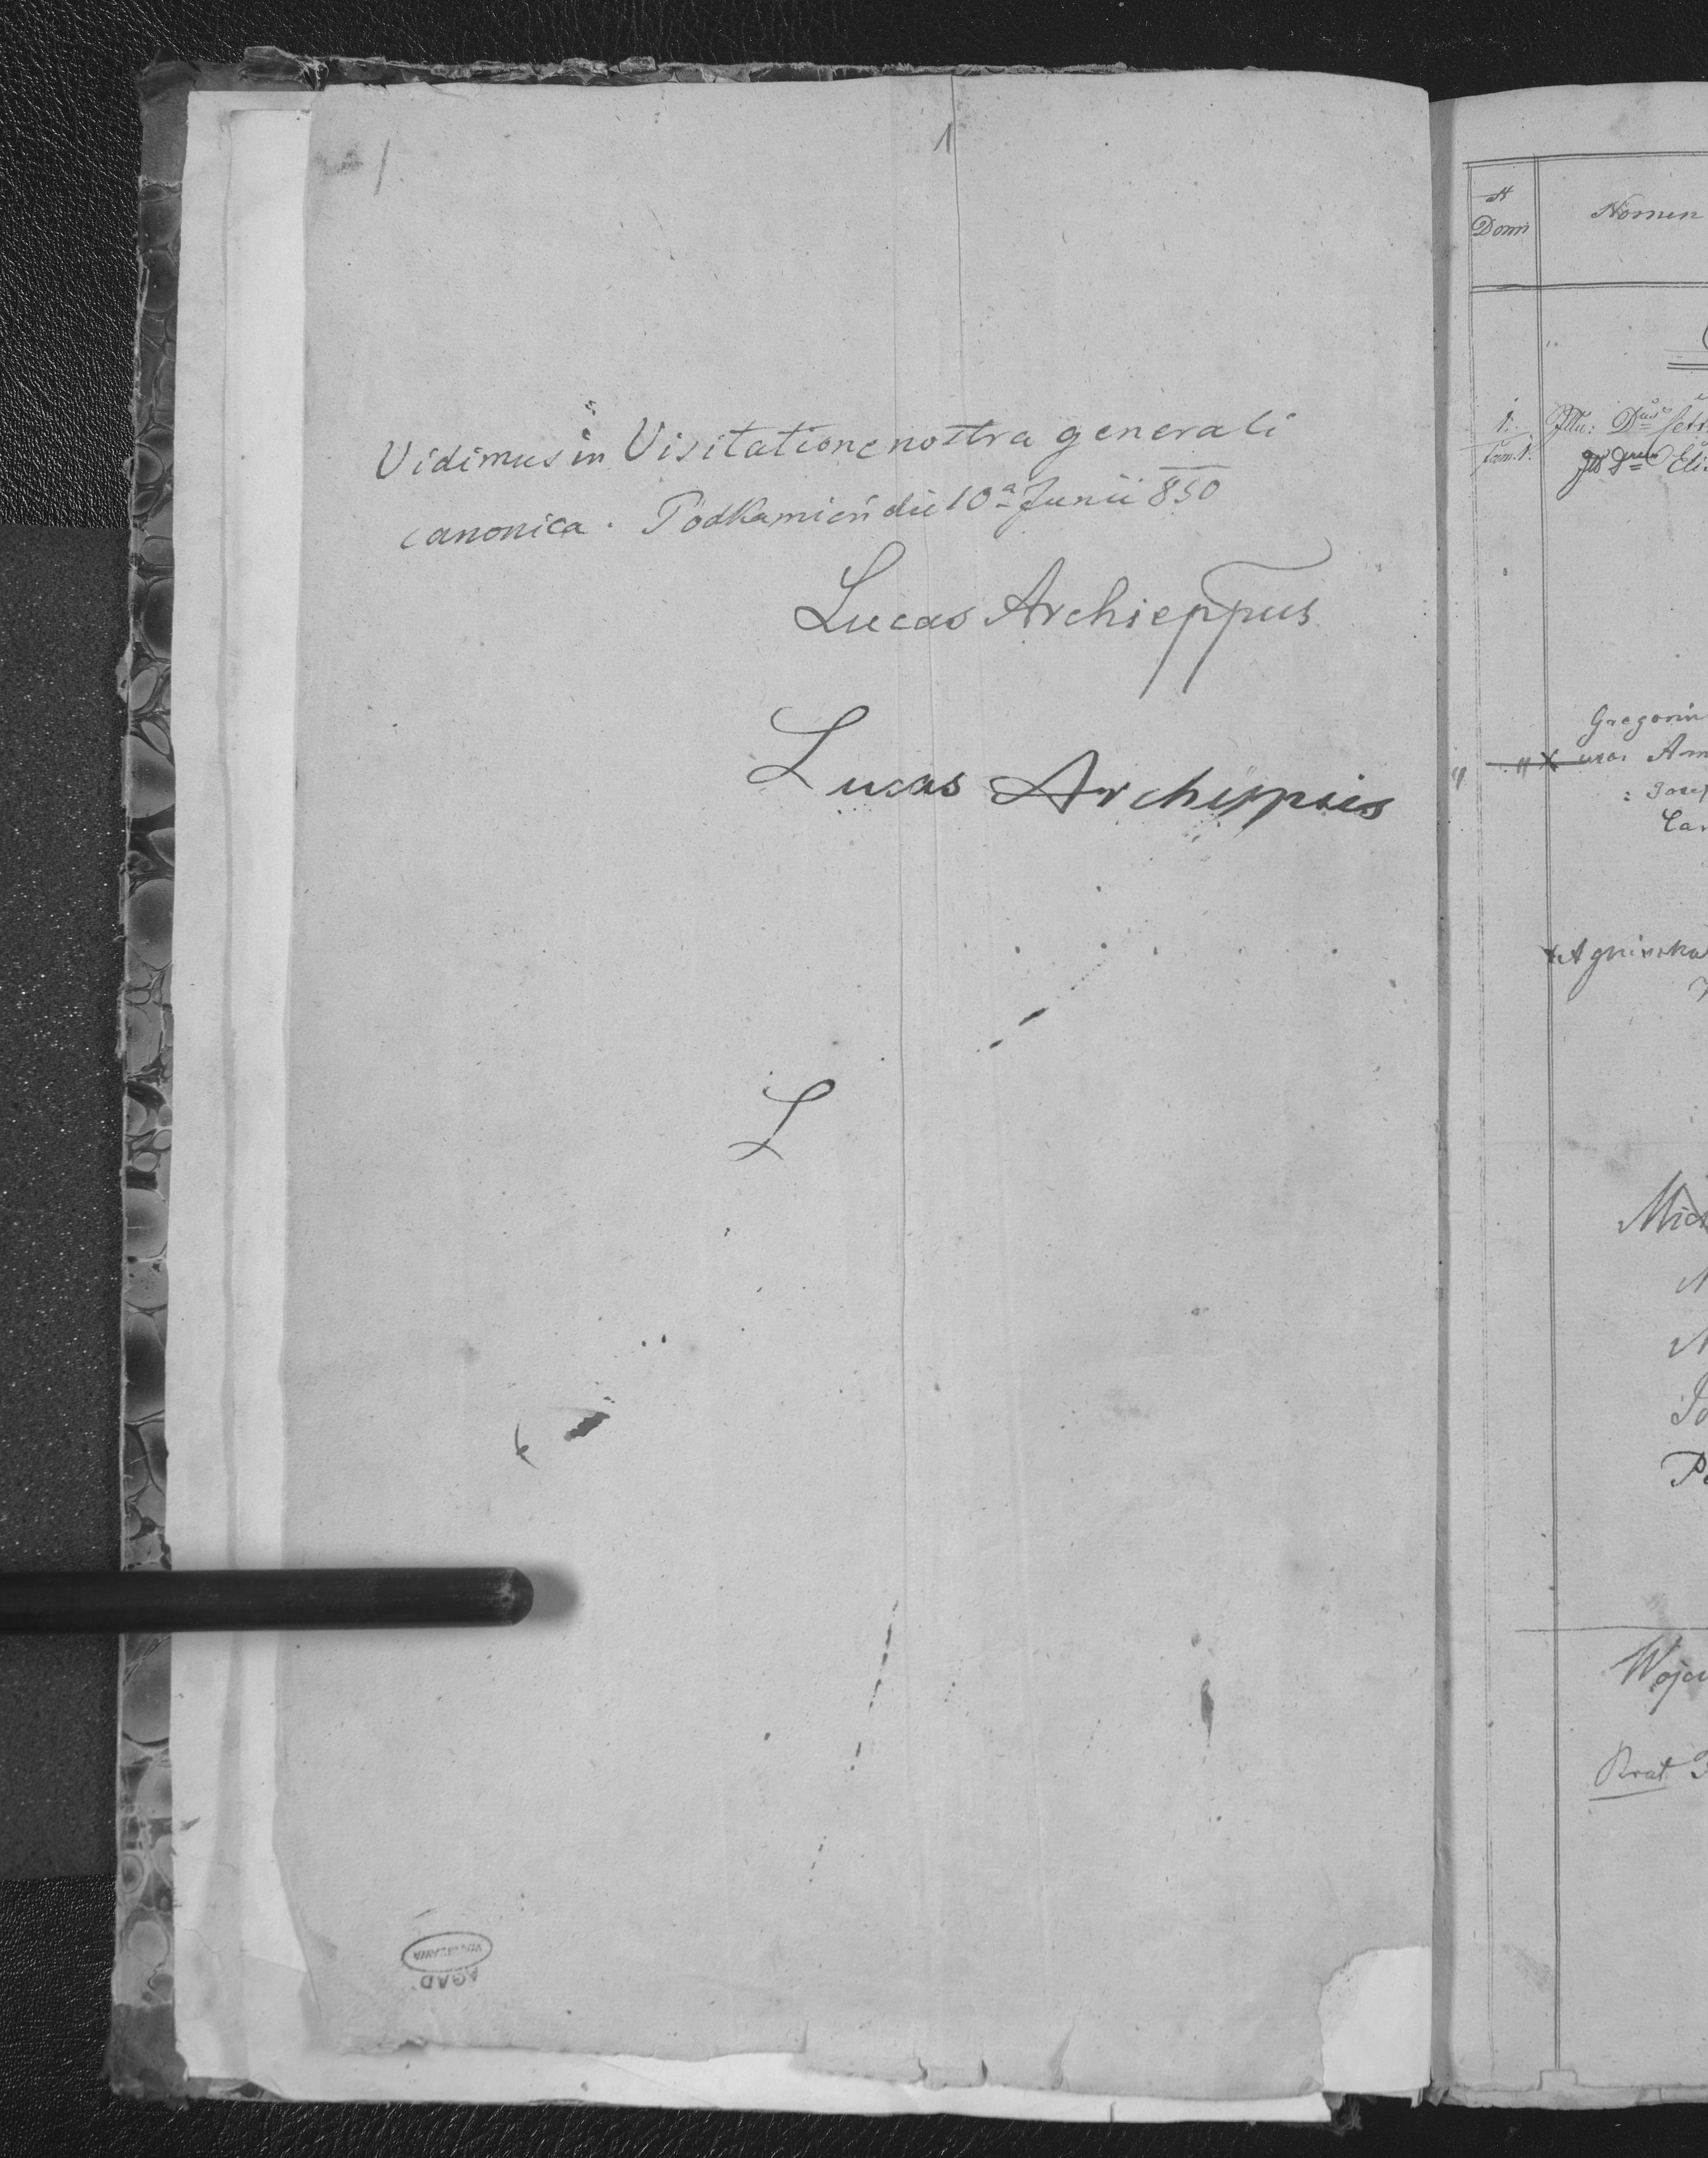 1
Vidimus in Visitatione nostra generali
canonica. Podkamień die 10ª Junii 850
Lucas Archieppus
Lucas Archippus
L
AGAD
WARSZAWA
N
Domi
Nomen
1.
Fam. 1.
Illu: Dnus
Gregoriu
uxor
Josep
Agnieszka
Mich
Wojci
Brat